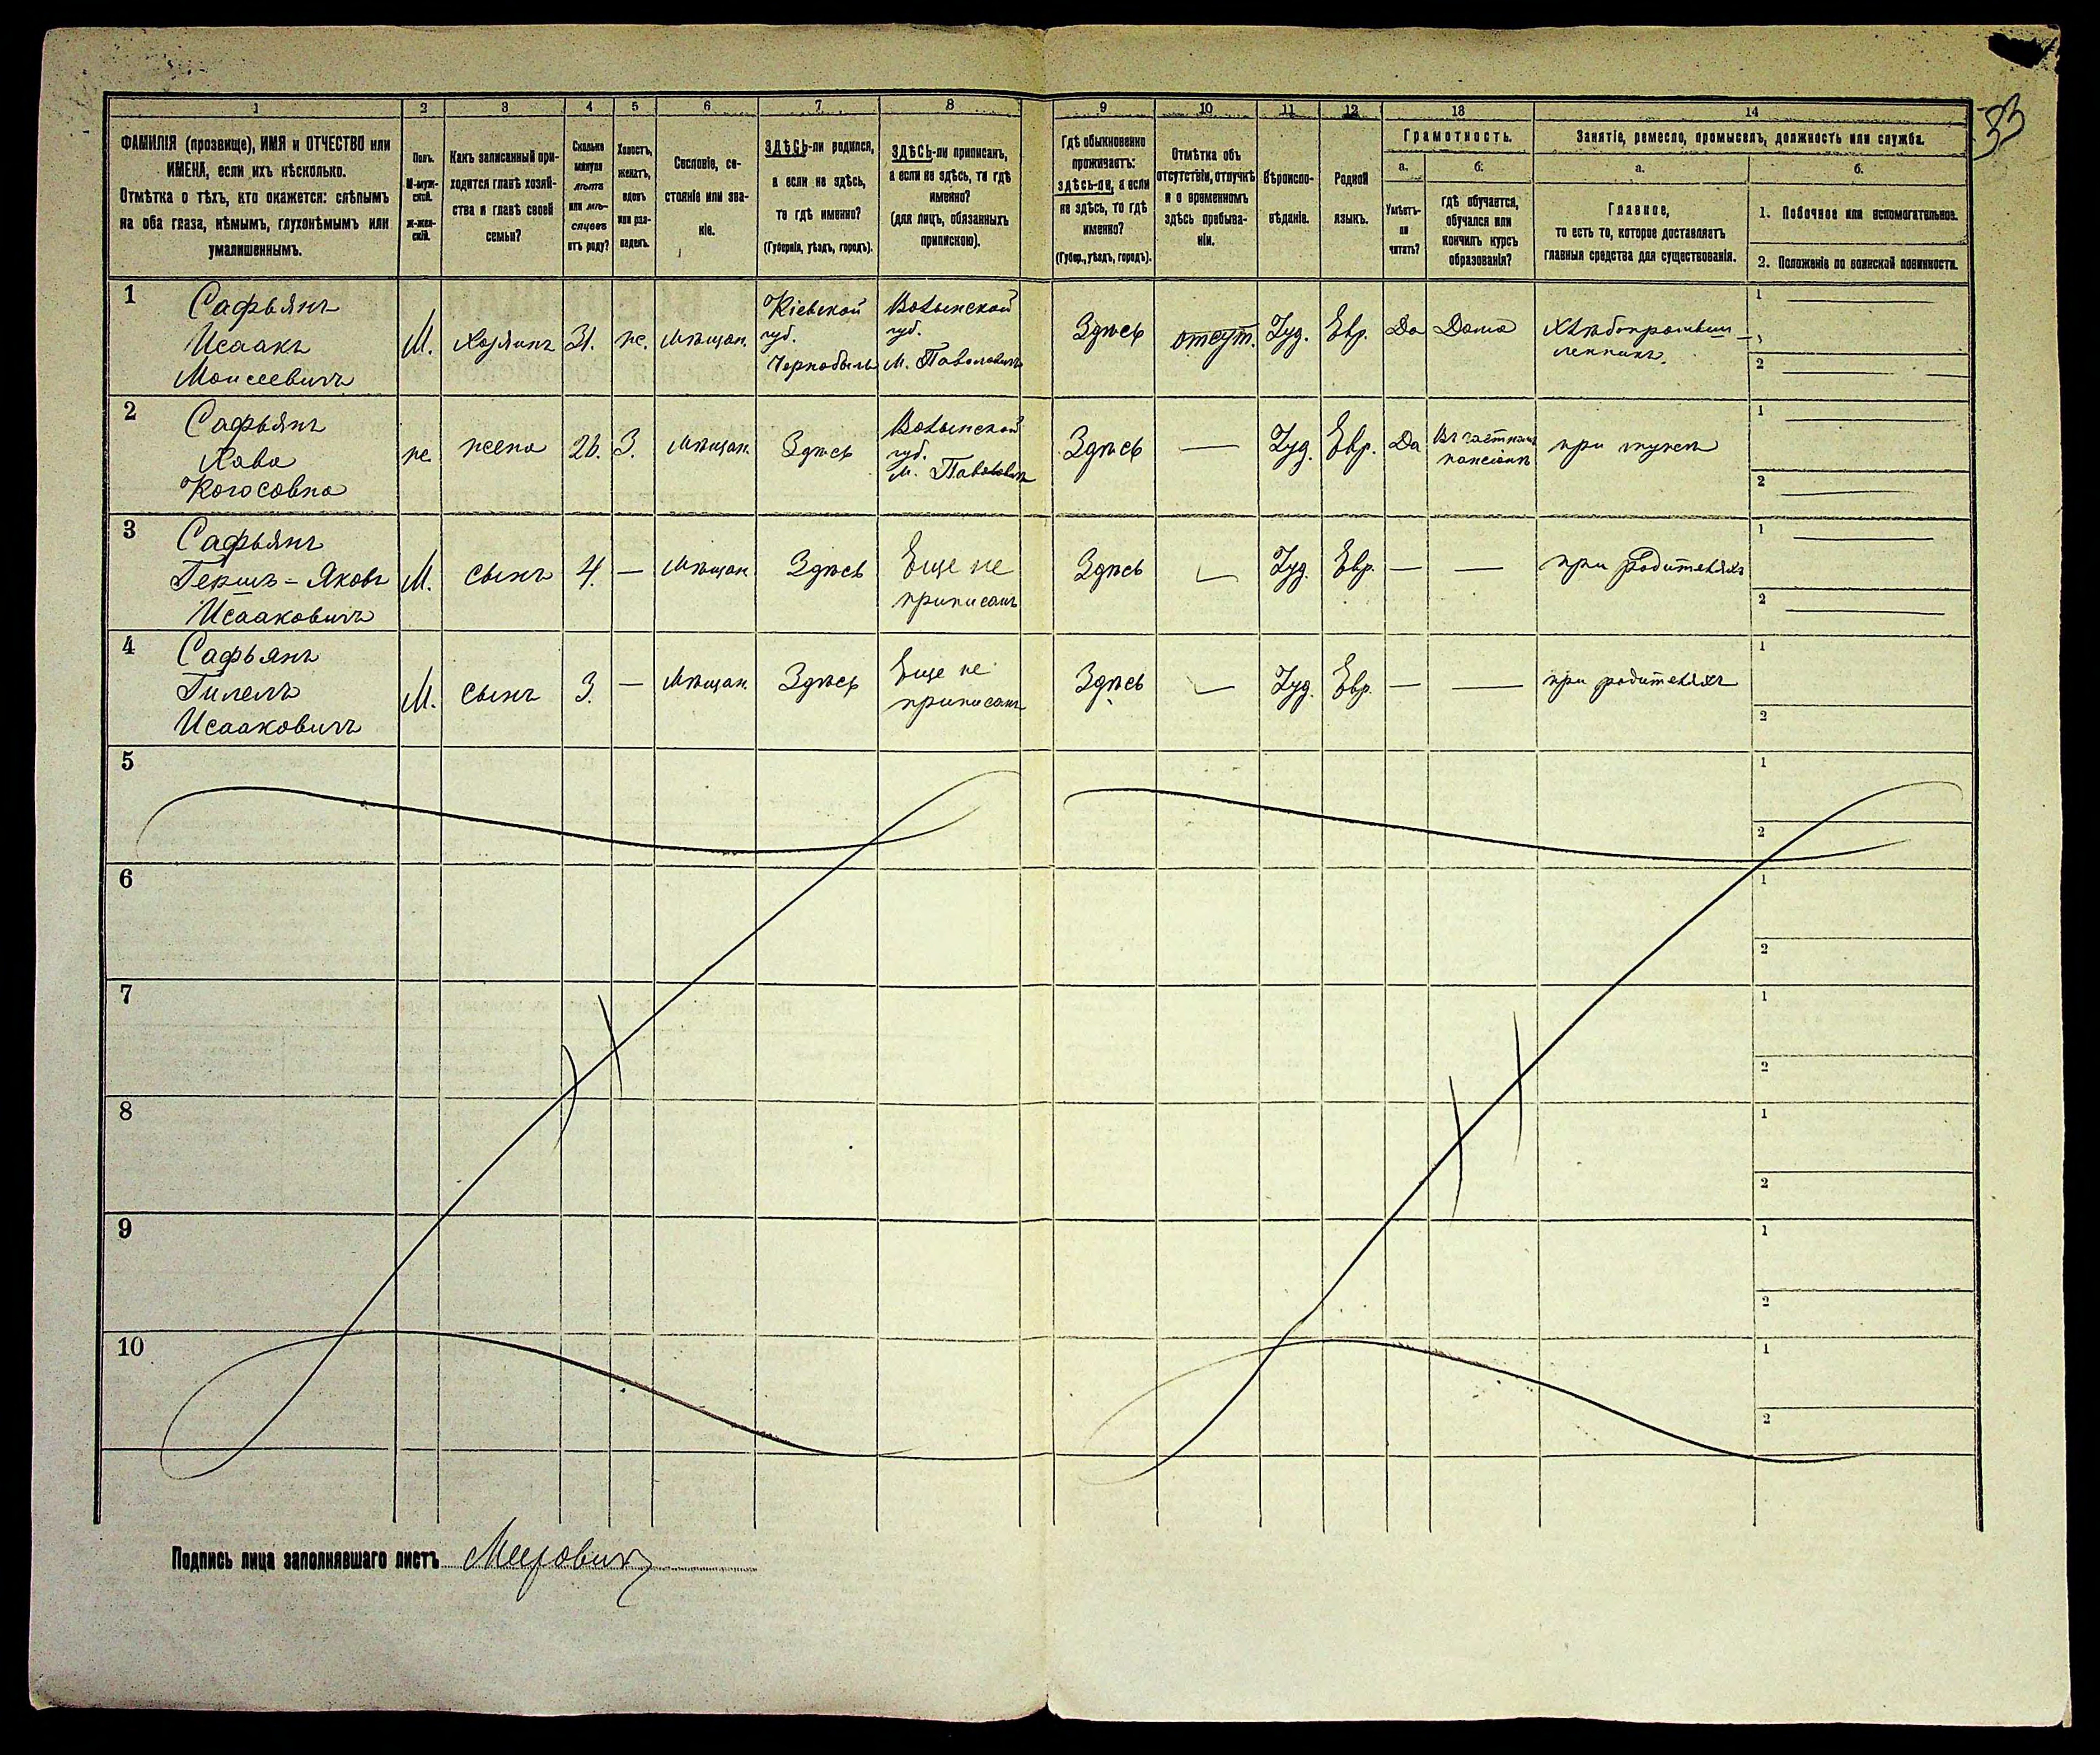 33
1 2 3 4 5 6 7 8 9 10 11 12 13 14
ФАМИЛІЯ (прозвище), ИМЯ и ОТЧЕСТВО или
ИМЕНА, если ихъ нѣсколько.
Отмѣтка о тѣхъ, кто окажется: слѣпымъ
на оба глаза, нѣмымъ, глухонѣмымъ или
умалишеннымъ.
Полъ.
М-муж-
ской.
Ж-жен-
скій.
Какъ записанный при-
ходится главѣ хозяй-
ства и главѣ своей
семьи?
Сколько
минуло
лѣтъ
или мѣ-
сяцевъ
отъ роду?
Холостъ,
женатъ,
вдовъ
или раз-
веденъ.
Сословіе, со-
стояніе или зва-
ніе.
ЗДѢСЬ-ли родился,
а если не здѣсь,
то гдѣ именно?
(Губернія, уѣздъ, городъ).
ЗДѢСЬ-ли приписанъ,
а если не здѣсь, то гдѣ
именно?
(для лицъ, обязанныхъ
припискою).
Гдѣ обыкновенно
проживаетъ:
здѣсь-ли, а если
не здѣсь, то гдѣ
именно?
(Губер., уѣздъ, городъ).
Отмѣтка объ
отсутствіи, отлучкѣ
и о временномъ
здѣсь пребыва-
ніи.
Вѣроиспо-
вѣданіе.
Родной
языкъ.
Грамотность.
а.
Умѣетъ-
ли
читать?
б.
гдѣ обучается,
обучался или
кончилъ курсъ
образованія?
Занятіе, ремесло, промыселъ, должность или служба.
а.
Главное,
то есть то, которое доставляетъ
главныя средства для существованія.
б.
1. Побочное или вспомогательное.
2. Положеніе по воинской повинности.
1
Сафьянъ
Исаакъ
Моисеевичъ
М.
Хозяинъ
31.
же.
Мѣщан.
Кіевской
губ.
Чернобыль
Волынской
губ.
м.
Здѣсь
отсут.
Іуд.
Евр.
Да
Дома
Хлѣбопромыш-
ленникъ
1
2
2
Сафьянъ
Хава
же.
жена
26.
З.
Мѣщан.
Здѣсь
Волынской
губ.
м.
Здѣсь
—
Іуд.
Евр.
Да
Въ частномъ
пансіонѣ
при мужѣ
1
2
3
Сафьянъ
Гершъ-Яковъ
Исааковичъ
М.
сынъ
4.
—
Мѣщан.
Здѣсь
Еще не
приписанъ
Здѣсь
—
Іуд.
Евр.
—
—
при родителяхъ
1
2
4
Сафьянъ
Гилель
Исааковичъ
М.
сынъ
3.
—
Мѣщан.
Здѣсь
Еще не
приписанъ
Здѣсь
—
Іуд.
Евр.
—
—
при родителяхъ
1
2
5
1
2
6
1
2
7
1
2
8
1
2
9
1
2
10
1
2
Подпись лица заполнявшаго листъ